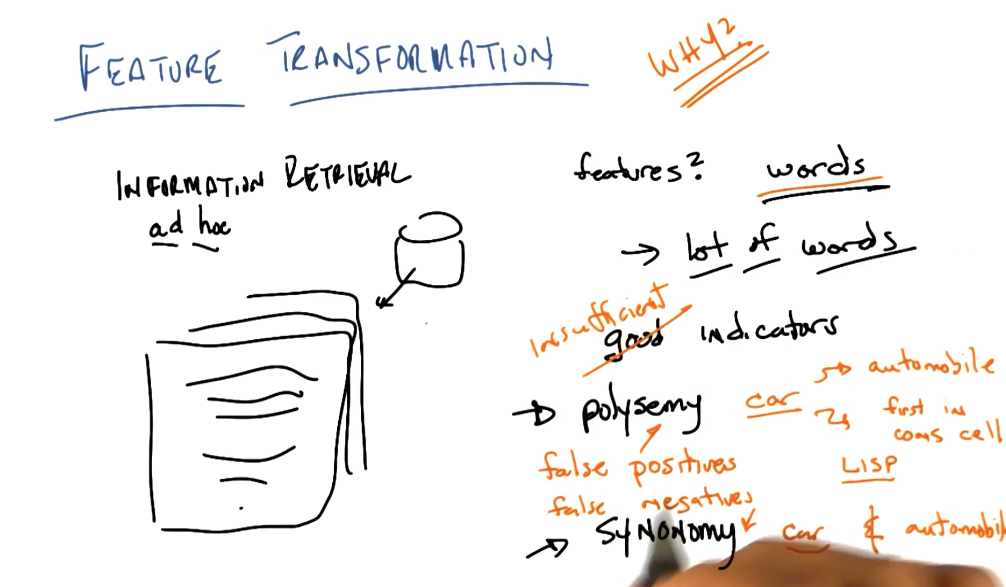 FEATURE TRANSFORMATION
WHY?
INFORMATION RETRIEVAL
ad hoc
features? words
→ lot of words
insufficient
good indicators
→ polysemy car → automobile
→ first in
cons cell
false positives
LISP
false negatives
→ SYNONOMY car & automobil